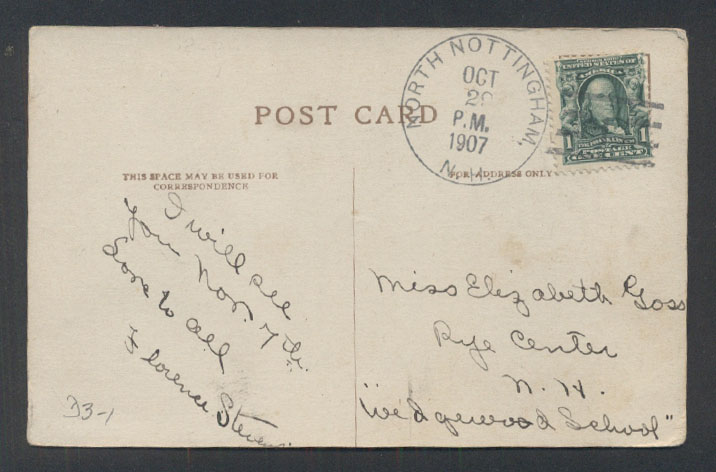 NORTH NOTTINGHAM,
OCT
P.M.
1907
N.H.
UNITED STATES OF
AMERICA
1 1
ONE CENT
POST CARD
THIS SPACE MAY BE USED FOR
CORRESPONDENCE
FOR ADDRESS ONLY
I will see
you Nov. 7th.
Love to all
Florence Steven
Miss Elizabeth Goss
Rye Center
N. H.
"Wedgewood School"
D3-1